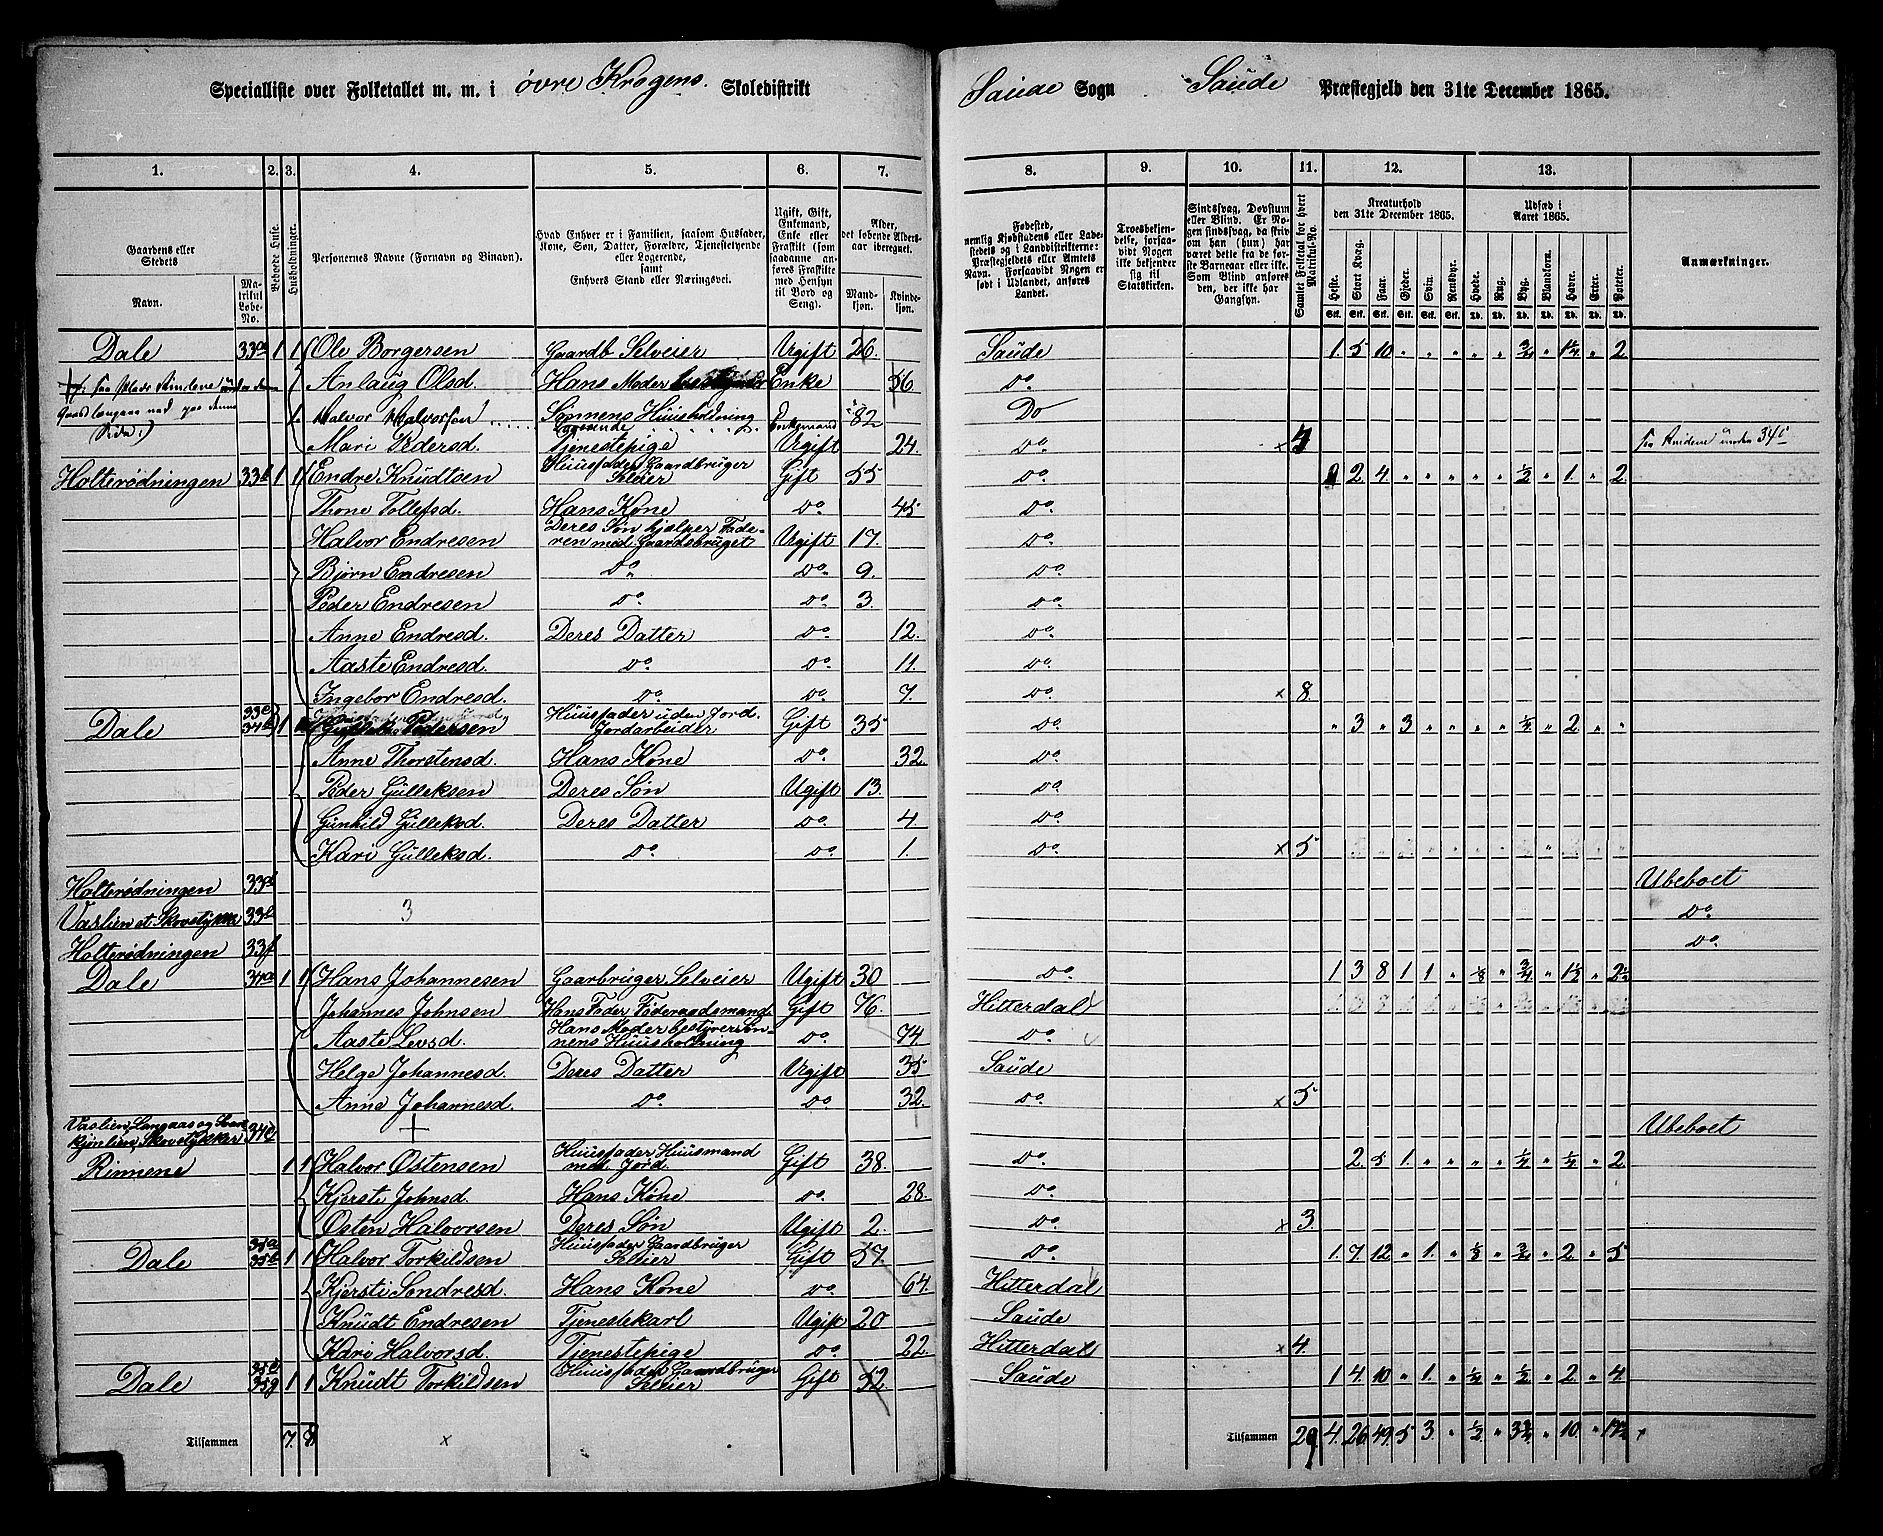 Specialliste over Folketallet m. m. i øvre Krogens Skoledistrikt Saude Sogn Saude Præstegjeld den 31te December 1865.
1. 2. 3. 4. 5. 6. 7. 8. 9. 10. 11. 12. 13.
Gaardens eller Stedets
Navn.
Matrikul Løbe-No.
Beboede Huse.
Husholdninger.
Personernes Navne (Fornavn og Binavn).
Hvad Enhver er i Familien, saasom Husfader, Kone, Søn, Datter, Forældre, Tjenestetyende eller Logerende, samt Enhvers Stand eller Næringsvei.
Ugift, Gift, Enkemand, Enke eller Fraskilt (som saadanne anføres Fraskilte med Hensyn til Bord og Seng).
Alder, det løbende Aldersaar iberegnet.
Mandkjøn. Kvindekjøn.
Fødested, nemlig Kjøbstadens eller Ladestedets og i Landdistrikterne: Præstegjeldets eller Amtets Navn. Forsaavidt Nogen er født i Udlandet, anføres Landet.
Troesbekjendelse, forsaavidt Nogen ikke bekjender sig til Statskirken.
Sindssvag, Døvstum eller Blind. Er Nogen sindssvag, da skrives om han (hun) har været dette fra de første Barneaar eller ikke. Som Blind anføres den, der ikke har Gangsyn.
Samlet Folketal for hvert Matrikul-No.
Kreaturhold den 31te December 1865.
Heste. Stort Kvæg. Faar. Gjeder. Svin. Rensdyr.
Udsæd i Aaret 1865.
Hvede. Rug. Byg. Blandkorn. Havre. Erter. Poteter.
Anmærkninger.
Dale 33a 1 1 Ole Borgersen Gaardb Selveier Ugift 26. Saude 1. 5 10 " " " " " 3/4 " 1 1/4 " 2
Anlaug Olsd. Hans Moder Enke 56 Do.
Halvor Halvorsen Sønnens Huusholdning Enkemand 82 Do
Mari Pedersd. Tjenestepige Ugift 24. Do. x 4
Holterødningen 33b 1 1 Endre Knudtsen Huusfader, Gaardbruger Selveier Gift 55 Do. 2 4. " " " " " 1/2 " 1. " 2
Thone Tollefsd. Hans Kone Do. 45 Do.
Halvor Endresen Deres Søn hjælper Faderen med Gaardsbruget Ugift 17. Do.
Bjørn Endresen Do. Do. 9. Do.
Peder Endresen Do. Do. 3. Do.
Anne Endresd. Deres Datter Do. 12. Do.
Aaste Endresd. Do. Do. 11. Do.
Ingebor Endresd. Do. Do. 7. Do. x 8.
Dale 33c 34b 1 Pedersen Huusfader uden Jord. Jordarbeider Gift 35 Do. " 3 " 3 " " " " 1/4 " 2. " "
Anne Thorstensd. Hans Kone Do. 32. Do.
Peder Gulleksen Deres Søn Ugift 13. Do.
Gunhild Gulleksd. Deres Datter Do. 4 Do.
Kari Gulleksd. Do. Do. 1. Do. x 5
Holterødningen 33d Ubeboet
Vaslien et Skovstykke 33e 3 Do.
Holterødningen 33f Do.
Dale 34a 1 1 Hans Johannesen Gaarbruger Selveier Ugift 30 Do. 1 3 8 1 1 " 1/8 " 3/4 " 1 1/2 " 2 1/2
Johannes Johnsen Hans Fader Føderaadsmand. Gift 76. Hitterdal
Aaste Levsd. Hans Moder bestyrer Sønnens Huusholdning Do. 74 Do.
Helge Johannesd. Deres Datter Ugift 35 Saude
Anne Johannesd. Do. Do. 32. Do. x 5
Vaslien, Langaas og Skovstykker 34c Ubeboet
Rinnene 1 1 Halvor Østensen Huusfader Huusmand med Jord. Gift 38. Do. 2. 5 1. " " " " 1/4 " 1/4 " 2
Kjersti Johnsd. Hans Kone Do. 28. Do.
Østen Halvorsen Deres Søn Ugift 2. Do. x 3.
Dale 35a 35b 1 1 Halvor Torkildsen Huusfader Gaardbruger Selveier Gift 57. Do. 1. 7. 12 " 1. " 1/8 " 3/4 " 2 " 5
Kjersti Sondresd. Hans Kone Do. 64. Hitterdal
Knudt Endresen Tjenestekarl Ugift 20 Saude
Kari Halvorsd. Tjenestepige Do. 22. Hitterdal x 4.
Dale 35c 35g 1 1 Knudt Torkildsen Huusfader Gaardbruger Selveier Gift 52 Saude 1 4. 10 " 1. " 1/4 " 1/2 " 2 " 4
Tilsammen 7. 8 x Tilsammen 29 4. 26 49. 5 3. " 1/2 " 3 3/4 " 10. " 17 1/2